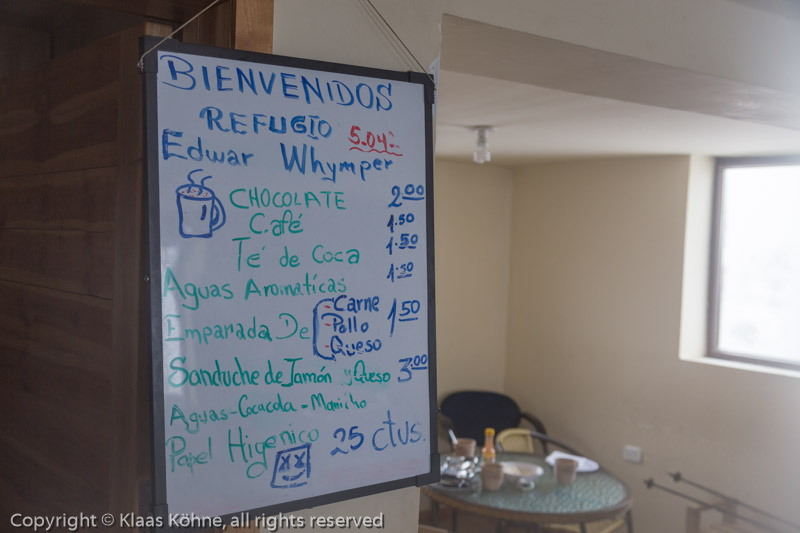 BIENVENIDOS
REFUGIO 5.04
Edwar Whymper
CHOCOLATE 2.00
Café 1.50
Té de Coca 1.50
Aguas Aromaticas 1.50
Emparada De -Carne 1.50
-Pollo
-Queso
Sanduche de Jamón y Queso 3.00
Aguas-Cocacola-Manicho
Papel Higenico 25 ctvs.
Copyright © Klaas Köhne, all rights reserved